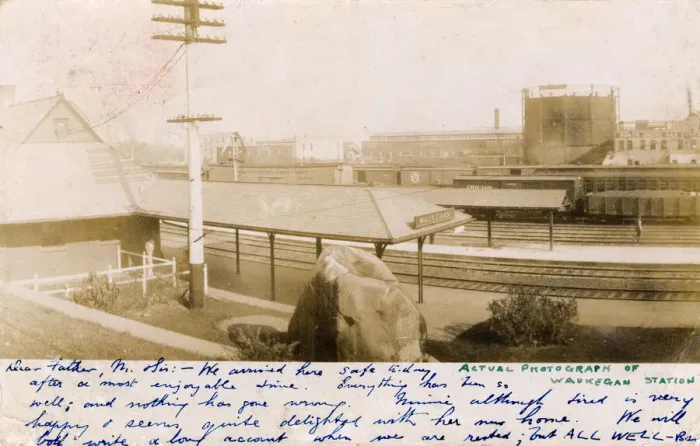 WAUKEGAN
CHICAGO
Dear Father, M. Sis:- We arrived here safe today
ACTUAL PHOTOGRAPH OF
WAUKEGAN STATION
after a most enjoyable time. Everything has been so
well; and nothing has gone wrong. Minnie although tired is very
happy & seems quite delighted with her new home. We will
both write a long account when we are rested; but ALL WELL